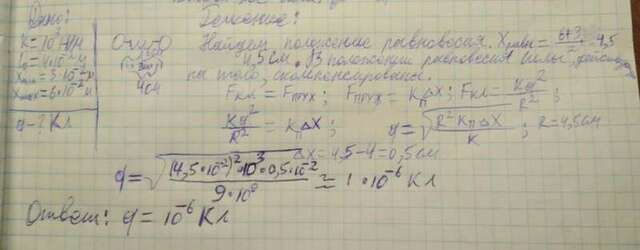 Дано:
Решение:
K = 10³ Н/м
l₀ = 4·10⁻² м
Xmin = 3·10⁻² м
Xmax = 6·10⁻² м
q - ? Кл
4см
Найдем положение равновесия. Xравн = (6+3)/2 = 4,5
4,5 см. В положении равновесия силы,
на тело, скомпенсированы.
Fкл = Fпруж; Fпруж = KпΔX; Fкл = Kq²/R²;
Kq²/R² = KпΔX; q = √(R²KпΔX/K); R = 4,5 см
ΔX = 4,5 - 4 = 0,5 см
q = √((4,5·10⁻²)²·10³·0,5·10⁻²/9·10⁹) ≅ 1·10⁻⁶ Кл
Ответ: q = 10⁻⁶ Кл